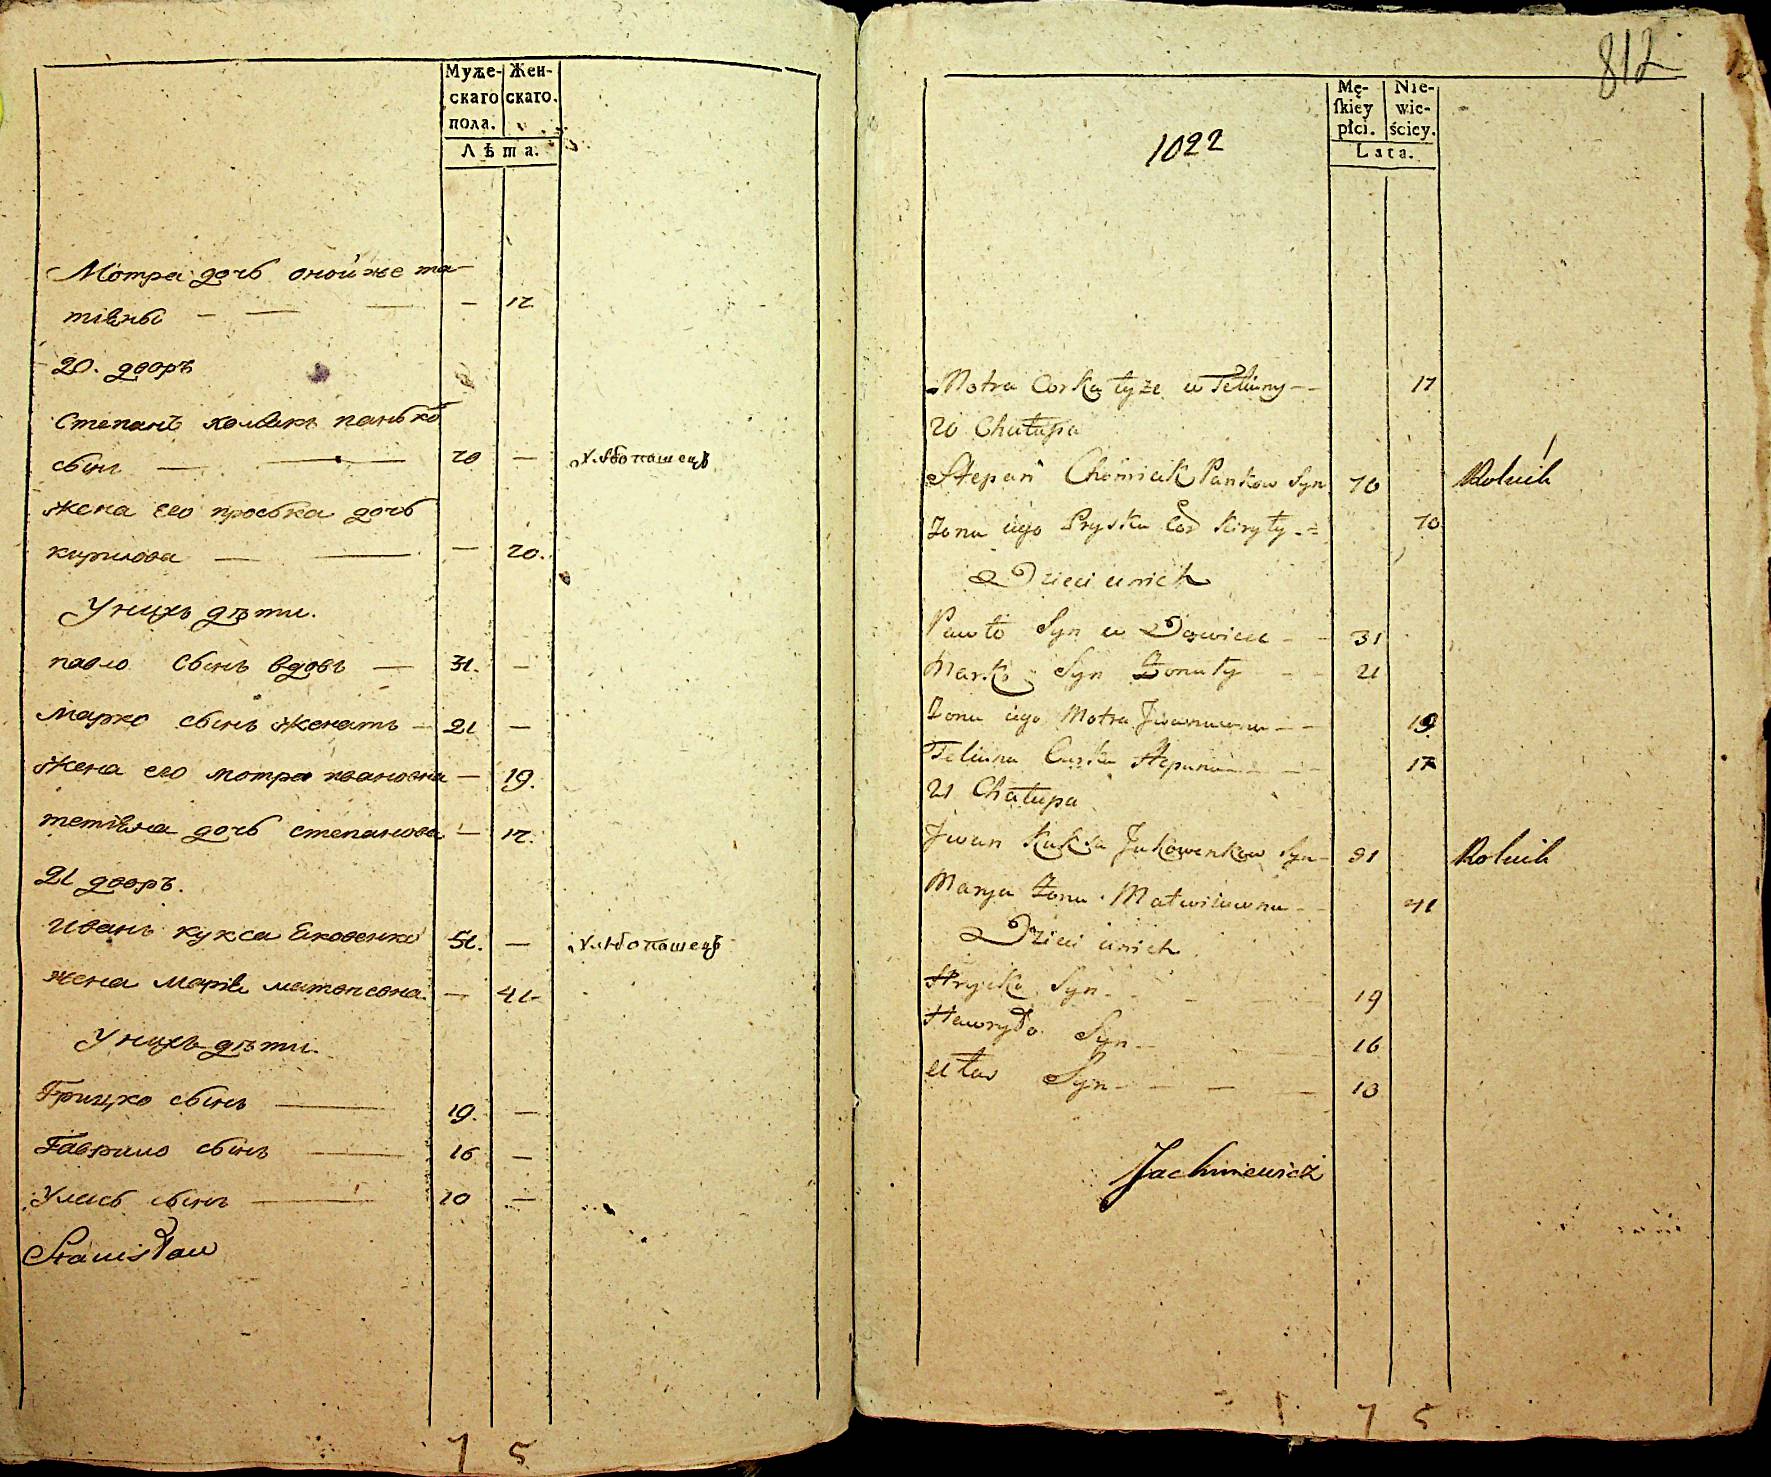 Муже- Жен-
скаго скаго.
пола.
Лѣта.
Мотра дочь оной же те
тіяны — — — — 17
20. дворъ
Степанъ хомякъ панько
сынъ — — 70 — хлѣбопашецъ
жена его проська дочь
кирилова — — — 70.
У нихъ дѣти.
павло сынъ вдовъ — 31. —
марко сынъ женатъ — 21 —
жена его мотра ивановна — 19.
тетіяна дочь степанова — 17.
21 дворъ.
Иванъ кукса Яковенко 51. — хлѣбопашецъ
жена Марія матвіевна. — 41-
У нихъ дѣти.
Грицко сынъ — 19. —
Гаврило сынъ — 16 —
Уласъ сынъ — 10 —
Stanisław
7 5
812
1022
Mę- Nie-
ſkiey wie-
płci. ściey.
Lata.
Motra Corka tyże Tetiany — — 17
20 Chałupa
Stepan Chomiak Pankow Syn 70 Rolnik
Zona iego Pryska Cor Kiryły 70
Dzieci u nich
Pawło Syn Wdowiec — — 31
Marko Syn Zonaty — — 21
Zona iego Motra Jwanowna — — 19
Tetiana Corka Stepana — — 17
21 Chałupa
Jwan Kuksa Jakowenkow Syn — 51 Rolnik
Marya Zona Matwiiowna — — 41
Dzieci u nich
Hrycko Syn — — 19
Hawryło Syn — — 16
Ułas Syn — — — — 10
Jachniewicz
7 5